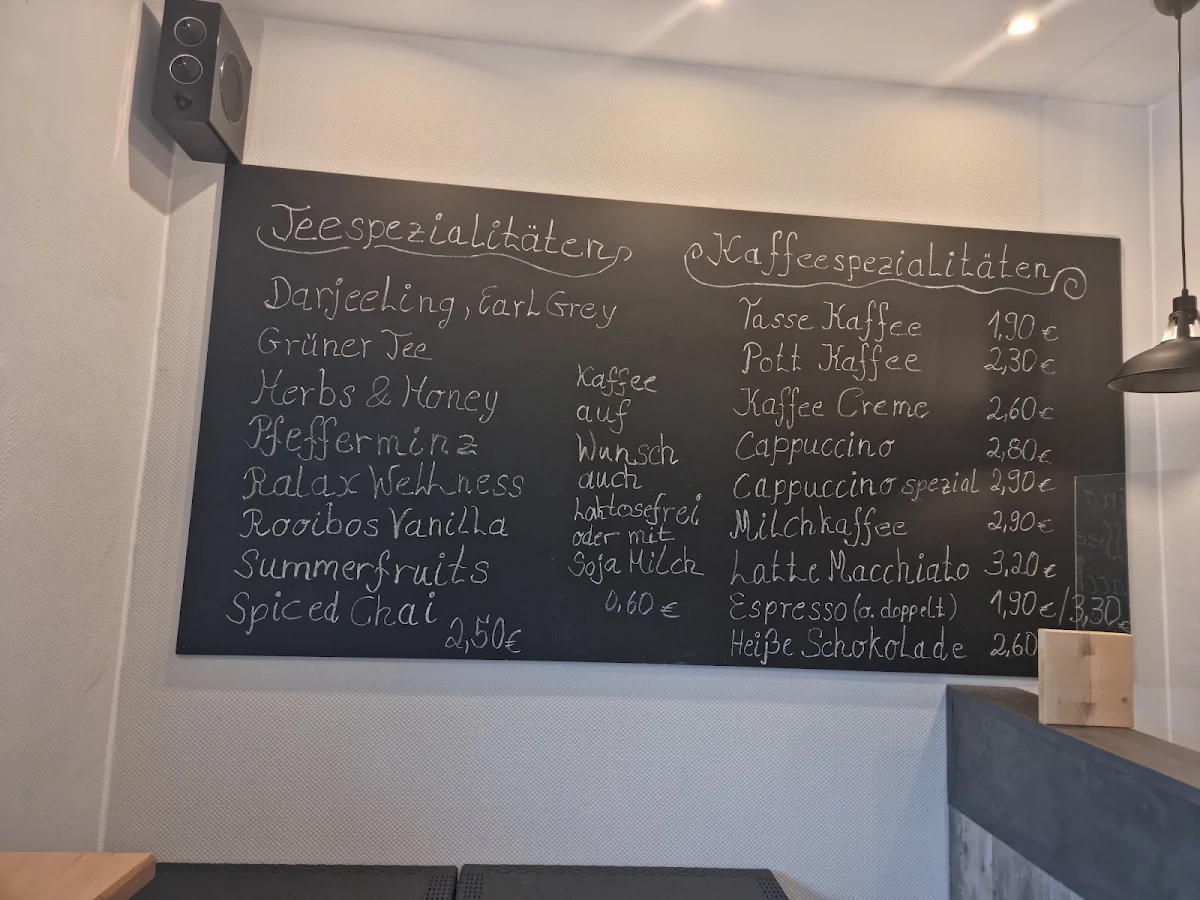 Teespezialitäten
Darjeeling, Earl Grey
Grüner Tee
Herbs & Honey
Pfefferminz
Ralax Wellness
Rooibos Vanilla
Summerfruits
Spiced Chai
2,50€
Kaffee
auf
Wunsch
auch
Laktosefrei
oder mit
Soja Milch
0,60 €
Kaffeespezialitäten
Tasse Kaffee 1,90 €
Pott Kaffee 2,30 €
Kaffee Creme 2,60 €
Cappuccino 2,80 €
Cappuccino spezial 2,90 €
Milchkaffee 2,90 €
Latte Macchiato 3,20 €
Espresso (o. doppelt) 1,90 €/3,30 €
Heiße Schokolade 2,60